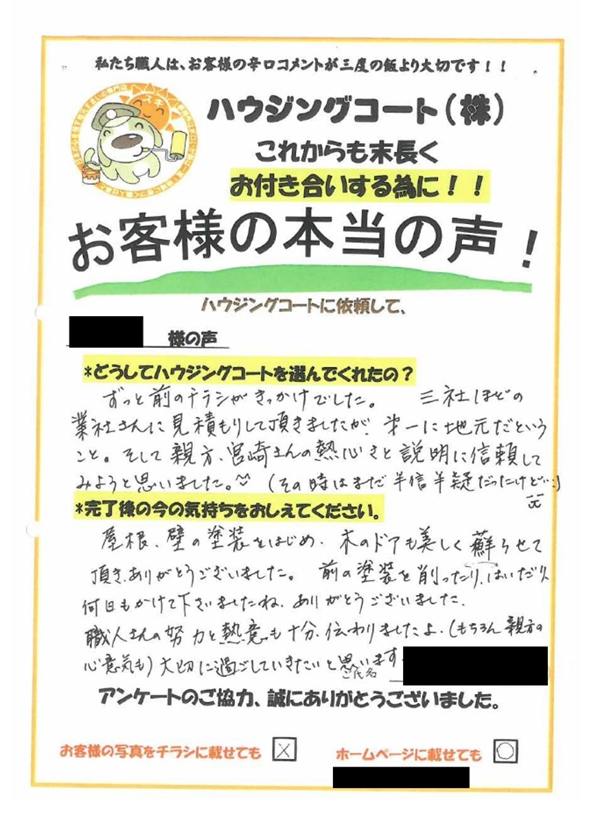 私たち職人は、お客様の辛口コメントが三度の飯より大切です！！
ハウジングコート(株)
これからも末長く
お付き合いする為に！！
お客様の本当の声！
ハウジングコートに依頼して、
様の声
*どうしてハウジングコートを選んでくれたの？
ずっと前のチラシがきっかけでした。 三社ほどの
業社さんに見積もりして頂きましたが、第一に地元だという
こと。そして親方、宮崎さんの熱心さと説明に信頼して
みようと思いました。(その時はまだ半信半疑だったけど…)
*完了後の今の気持ちをおしえてください。
屋根、壁の塗装をはじめ、木のドアも美しく蘇らせて
頂き、ありがとうございました。 前の塗装を削ったり、はいだり、
何日もかけて下さいましたね、ありがとうございました。
職人さんの努力と熱意も十分、伝わりましたよ。(もちろん親方の
心意気も)大切に過ごしていきたいと思います
ご氏名
アンケートのご協力、誠にありがとうございました。
お客様の写真をチラシに載せても ☒ ホームページに載せても 〇